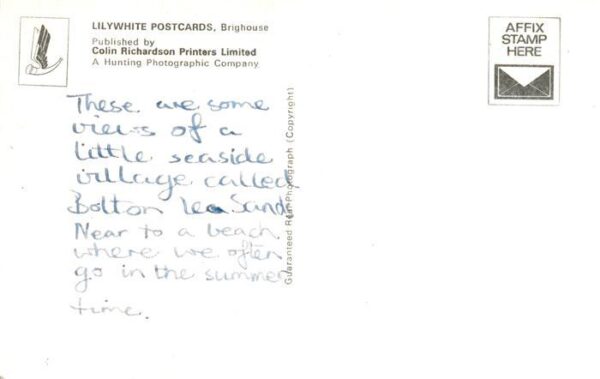 LILYWHITE POSTCARDS, Brighouse
Published by
Colin Richardson Printers Limited
A Hunting Photographic Company
AFFIX
STAMP
HERE
These are some
views of a
little seaside
village called
Bolton Le Sands
Near to a beach
where we often
go in the summer
time.
Guaranteed Real Photograph (Copyright)